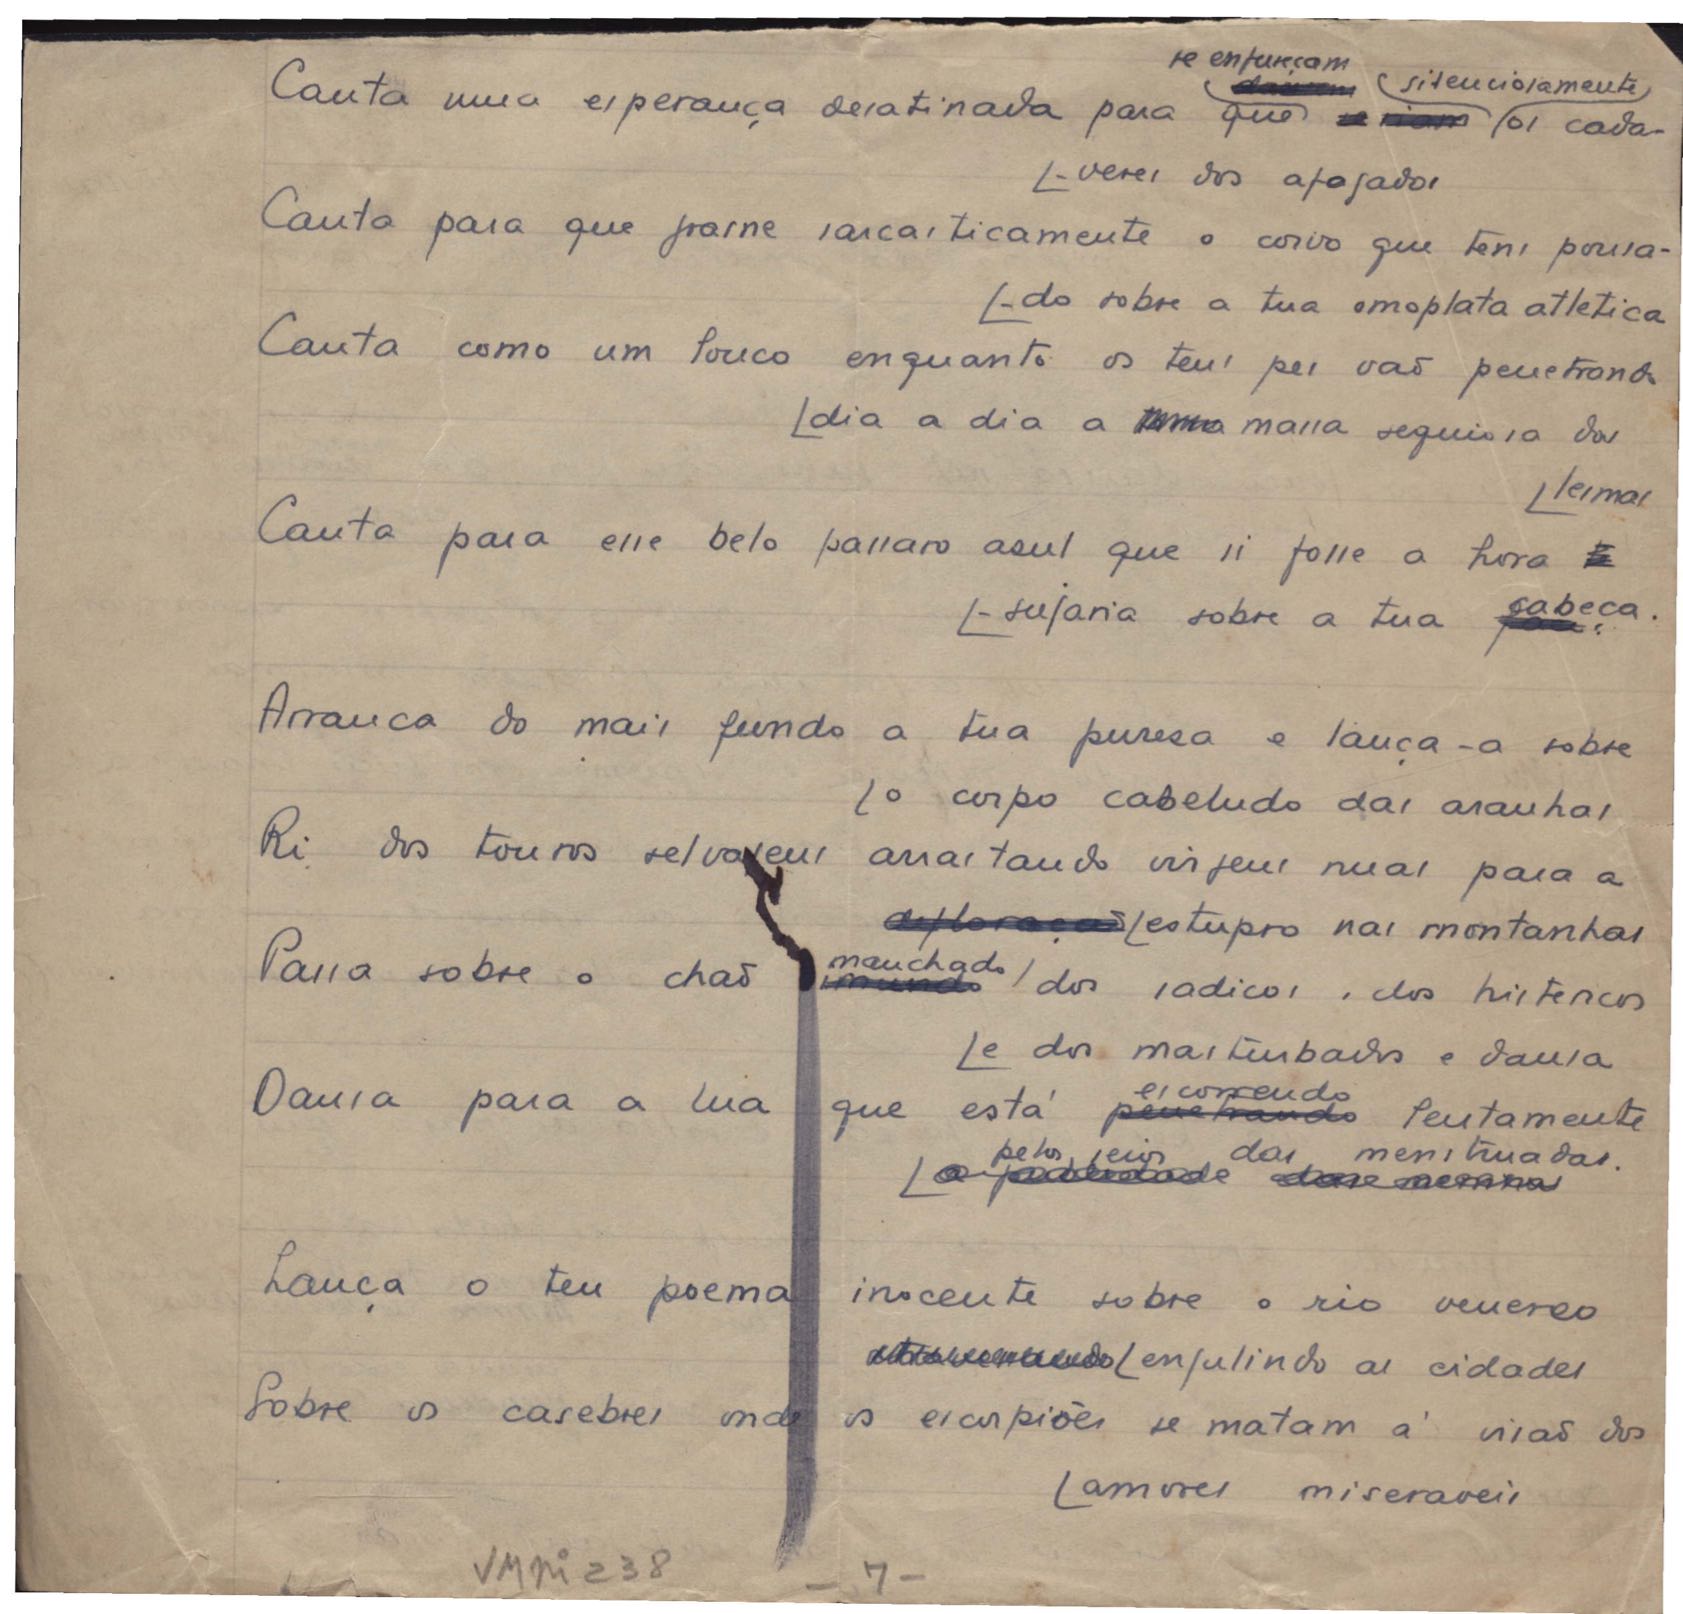 se enfureçam silenciosamente
Canta uma esperança desatinada para que os cada-
[-veres dos afogados
Canta para que grasne sarcasticamente o corvo que tens pousa-
[-do sobre a tua omoplata atletica
Canta como um louco enquanto os teus pes vaõ penetrando
[dia a dia a massa sequiosa das
[lesmas
Canta para esse belo passaro asul que si fosse a hora
[-sujaria sobre a tua cabeça.
Arranca do mais fundo a tua puresa e lança-a sobre
[o corpo cabeludo das aranhas
Ri dos touros selvagens arrastando virgens nuas para a
[estupro nas montanhas
manchado
Passa sobre o chaõ imundo dos sadicos, dos histericos
[e dos masturbados e dansa
escorrendo
Dansa para a lua que está penetrando lentamente
pelos seios das menstruadas.
Lança o teu poema inocente sobre o rio venereo
[engulindo as cidades
Sobre os casebres onde os escorpiões se matam á visaõ dos
[amores miseraveis
VMMi238 -7-